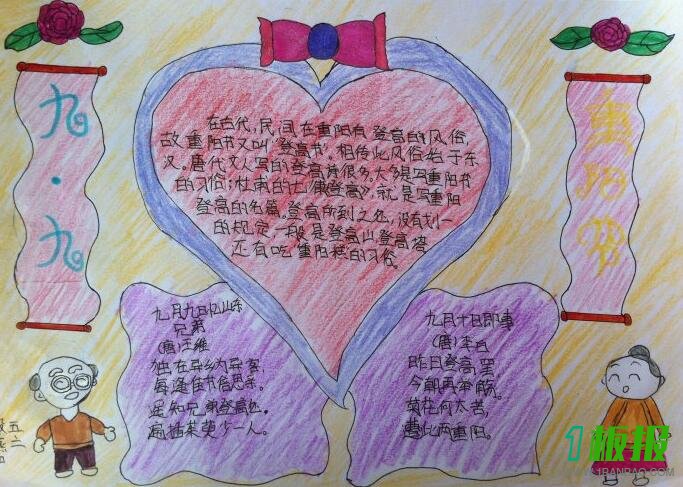 九·九
重阳节
在古代,民间在重阳有登高的风俗,
故重阳节又叫"登高节"。相传此风俗始于东
汉。唐代文人写的登高诗很多,大多是写重阳节
的习俗;杜甫的七律《登高》,就是写重阳
登高的名篇。登高所到之处,没有划一
的规定,一般是登高山、登高塔
还有吃重阳糕的习俗。
九月九日忆山东
兄弟
(唐)王维
独在异乡为异客,
每逢佳节倍思亲。
遥知兄弟登高处,
遍插茱萸少一人。
九月十日即事
(唐)李白
昨日登高罢,
今朝再举觞。
菊花何太苦,
遭此两重阳。
五二
1板报
1BANBAO.COM